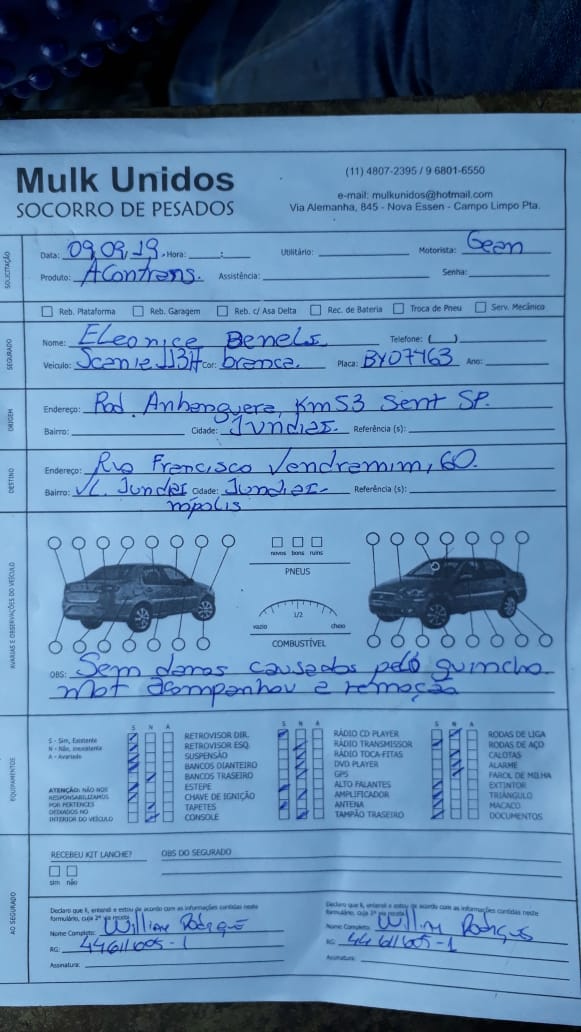 Mulk Unidos
SOCORRO DE PESADOS
(11) 4807-2395 / 9 6801-6550
e-mail: mulkunidos@hotmail.com
Via Alemanha, 845 - Nova Essen - Campo Limpo Pta.
SOLICITAÇÃO
Data: 09,09,19 Hora: : Utilitário: Motorista: Gean
Produto: AContrans. Assistência: Senha:
Reb. Plataforma Reb. Garagem Reb. c/ Asa Delta Rec. de Bateria Troca de Pneu Serv. Mecânico
SEGURADO
Nome: Eleonice Benels Telefone: ( )
Veículo: Scanie 113H Cor: branca. Placa: BYO7463 Ano:
ORIGEM
Endereço: Rod. Anhanguera, Km53 Sent SP.
Bairro: Cidade: Jundiaí. Referência (s):
DESTINO
Endereço: Rua Francisco Vendramim, 60.
Bairro: VL. Jundiai Cidade: Jundiaí- Referência (s):
nópolis
AVARIAS E OBSERVAÇÕES DO VEÍCULO
novos bons ruins
PNEUS
1/2
vazio cheio
COMBUSTÍVEL
OBS: Sem danos causados pelo guincho
mot acompanhou a remoção
EQUIPAMENTOS
S N A S N A S N A
S - Sim, Existente
N - Não, Inexistente
A - Avariado
ATENÇÃO: NÃO NOS
RESPONSABILIZAMOS
POR PERTENCES
DEIXADOS NO
INTERIOR DO VEÍCULO
RETROVISOR DIR.
RETROVISOR ESQ.
SUSPENSÃO
BANCOS DIANTEIRO
BANCOS TRASEIRO
ESTEPE
CHAVE DE IGNIÇÃO
TAPETES
CONSOLE
RÁDIO CD PLAYER
RÁDIO TRANSMISSOR
RÁDIO TOCA-FITAS
DVD PLAYER
GPS
ALTO FALANTES
AMPLIFICADOR
ANTENA
TAMPÃO TRASEIRO
RODAS DE LIGA
RODAS DE AÇO
CALOTAS
ALARME
FAROL DE MILHA
EXTINTOR
TRIÂNGULO
MACACO
DOCUMENTOS
AO SEGURADO
RECEBEU KIT LANCHE?
sim não
OBS DO SEGURADO
Declaro que li, entendi e estou de acordo com as informações contidas neste
formulário, cuja 2ª via recebi
Nome Completo: Willian Rodrigue
RG: 44611605-1
Assinatura:
Declaro que li, entendi e estou de acordo com as informações contidas neste
formulário, cuja 2ª via recebi
Nome Completo: Willian Rodrigus
RG: 44611605-1
Assinatura: